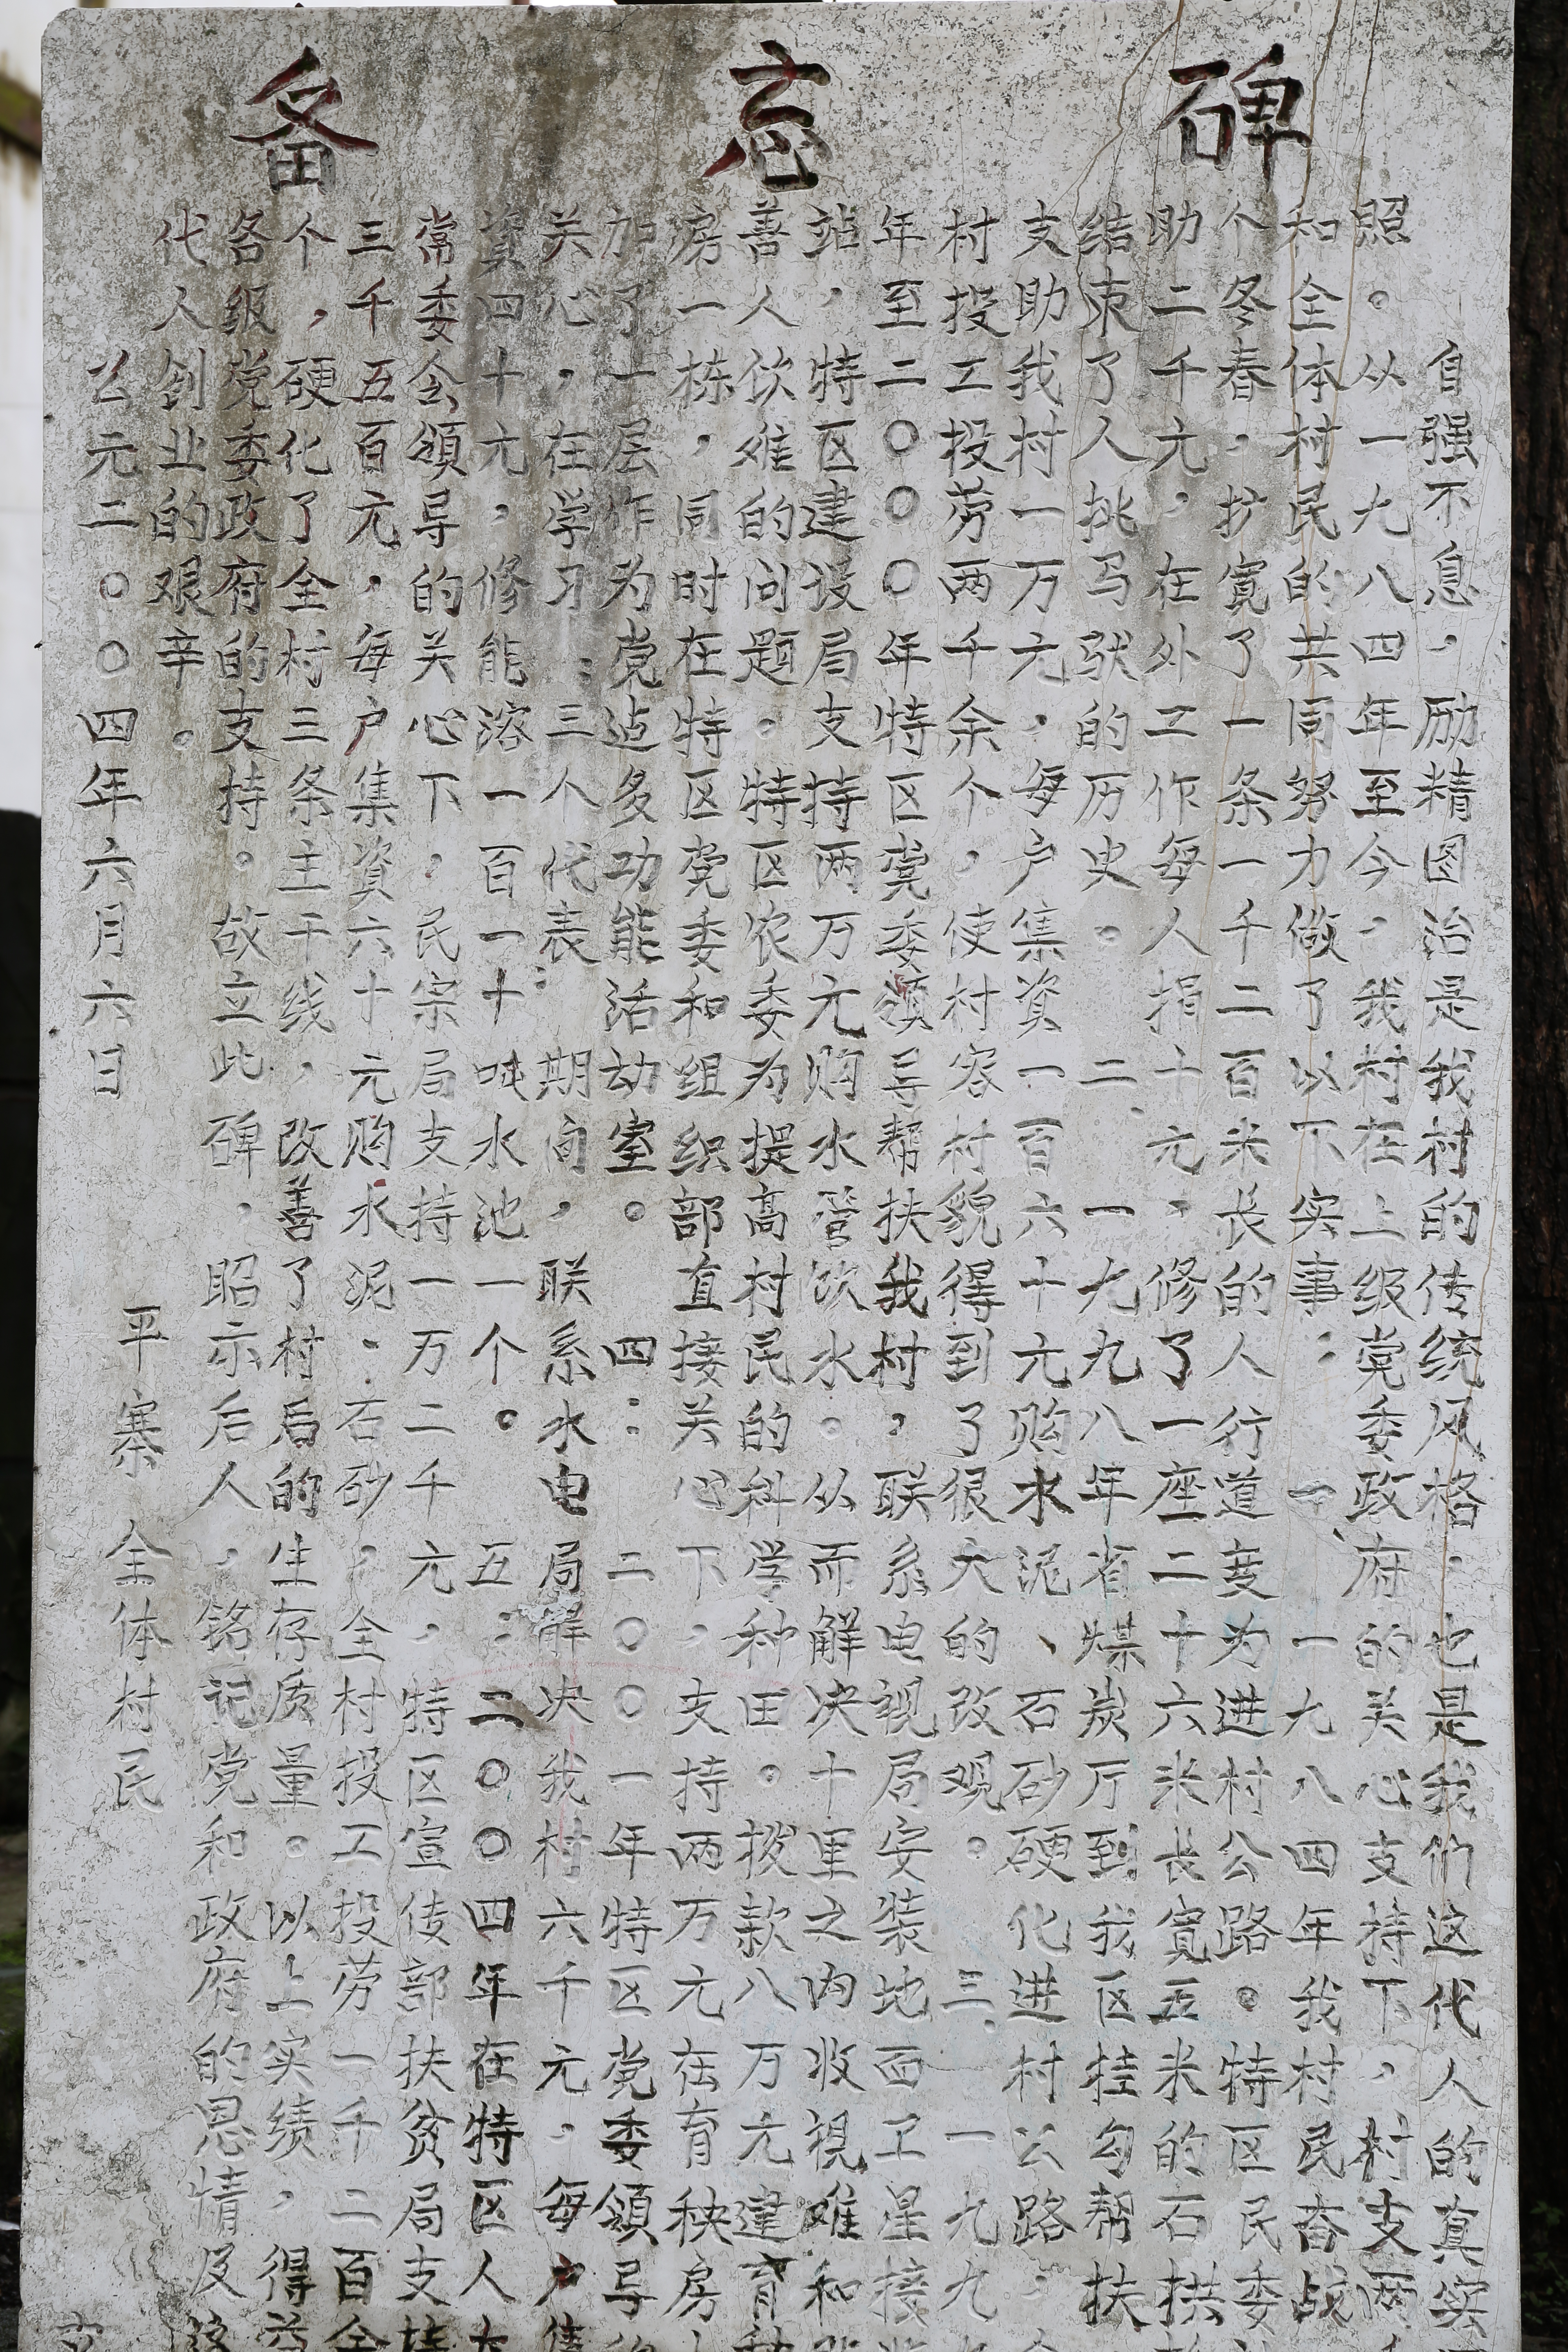 备忘碑
自强不息，励精图治是我村的传统风格，也是我们这代人的真实
照。从一九八四年至今，我村在上级党委政府的关心支持下，村支两
和全体村民的共同努力做了以下实事：一、一九八四年我村民奋战
个冬春，扩宽了一条一千二百米长的人行道变为进村公路。特区民委
助二千元，在外工作每人捐十元，修了一座二十六米长宽五米的石拱
结束了人挑马驮的历史。二、一九九八年省煤炭厅到我区挂勾帮扶
支助我村一万元，每户集资一百六十元购水泥、石砂硬化进村公路，
村投工投劳两千余个，使村容村貌得到了很大的改观。三、一九九
年至二〇〇〇年特区党委领导帮扶我村，联系电视局安装地面卫星接
站，特区建设局支持两万元购水管饮水。从而解决十里之内收视难和
善人饮难的问题。特区农委为提高村民的科学种田。拨款八万元建育
房一栋，同时在特区党委和组织部直接关心下，支持两万元在育秧房
加了一层作为党迠多功能活动室。四：二〇〇一年特区党委领导
关心，在学习：三个代表：期间，联系水电局解决我村六千元，每户集
资四十元，修能溶一百一十吨水池一个。五：二〇〇四年在特区人大
常委会领导的关心下，民宗局支持一万二千元，特区宣传部扶贫局支持
三千五百元，每户集资六十元购水泥．石砂，全村投工投劳一千二百余
个，硬化了全村三条主干线，改善了村后的生存质量。以上实绩，得益
各级党委政府的支持。故立此碑，昭示后人，铭记党和政府的恩情及
代人创业的艰辛。
平寨全体村民
公元二〇〇四年六月六日